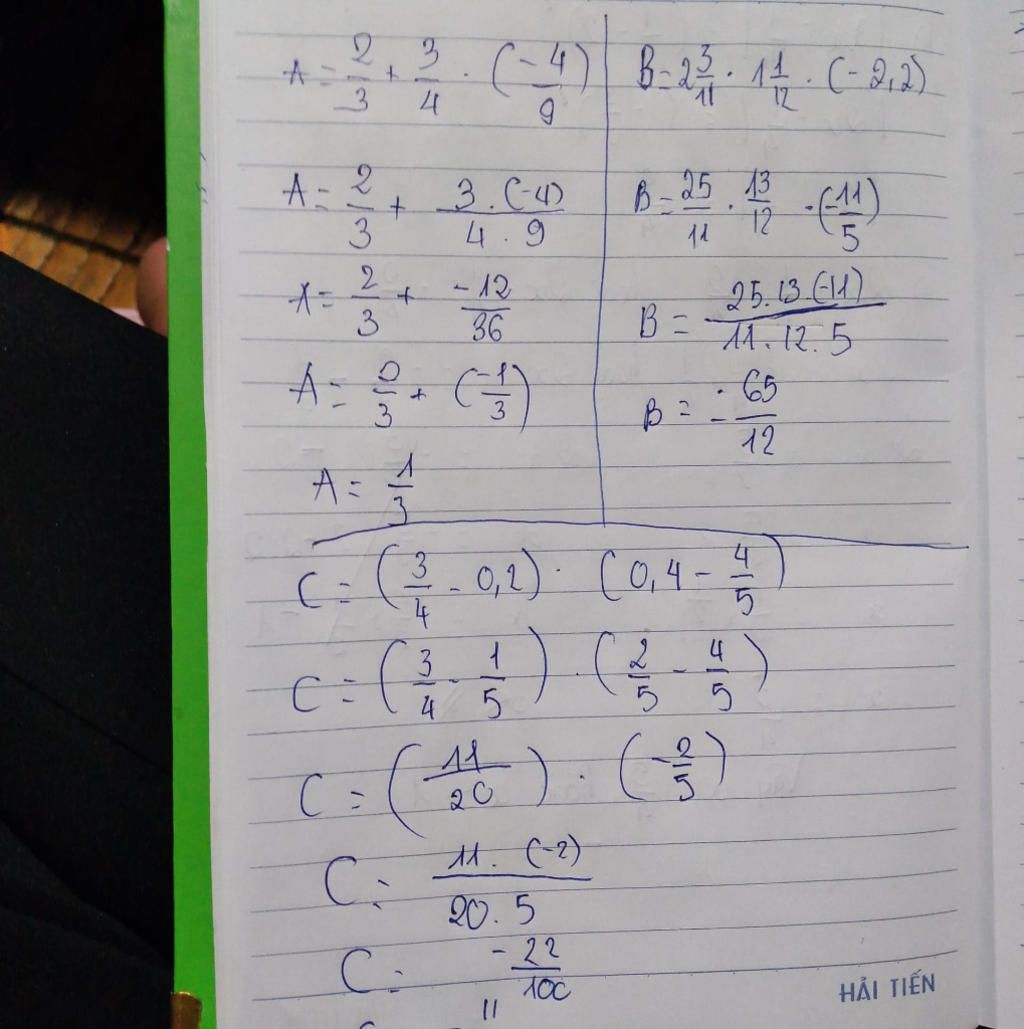 A = 2/3 + 3/4 . (-4/9)
A = 2/3 + 3.(-4)/4.9
A = 2/3 + -12/36
A = 2/3 + (-1/3)
A = 1/3
B = 2 3/11 . 1 1/12 . (-2,2)
B = 25/11 . 13/12 . (-11/5)
B = 25.13.(-11)/11.12.5
B = -65/12
C = (3/4 - 0,2) . (0,4 - 4/5)
C = (3/4 - 1/5) . (2/5 - 4/5)
C = (11/20) . (-2/5)
C = 11.(-2)/20.5
C = -22/100
11
HẢI TIẾN